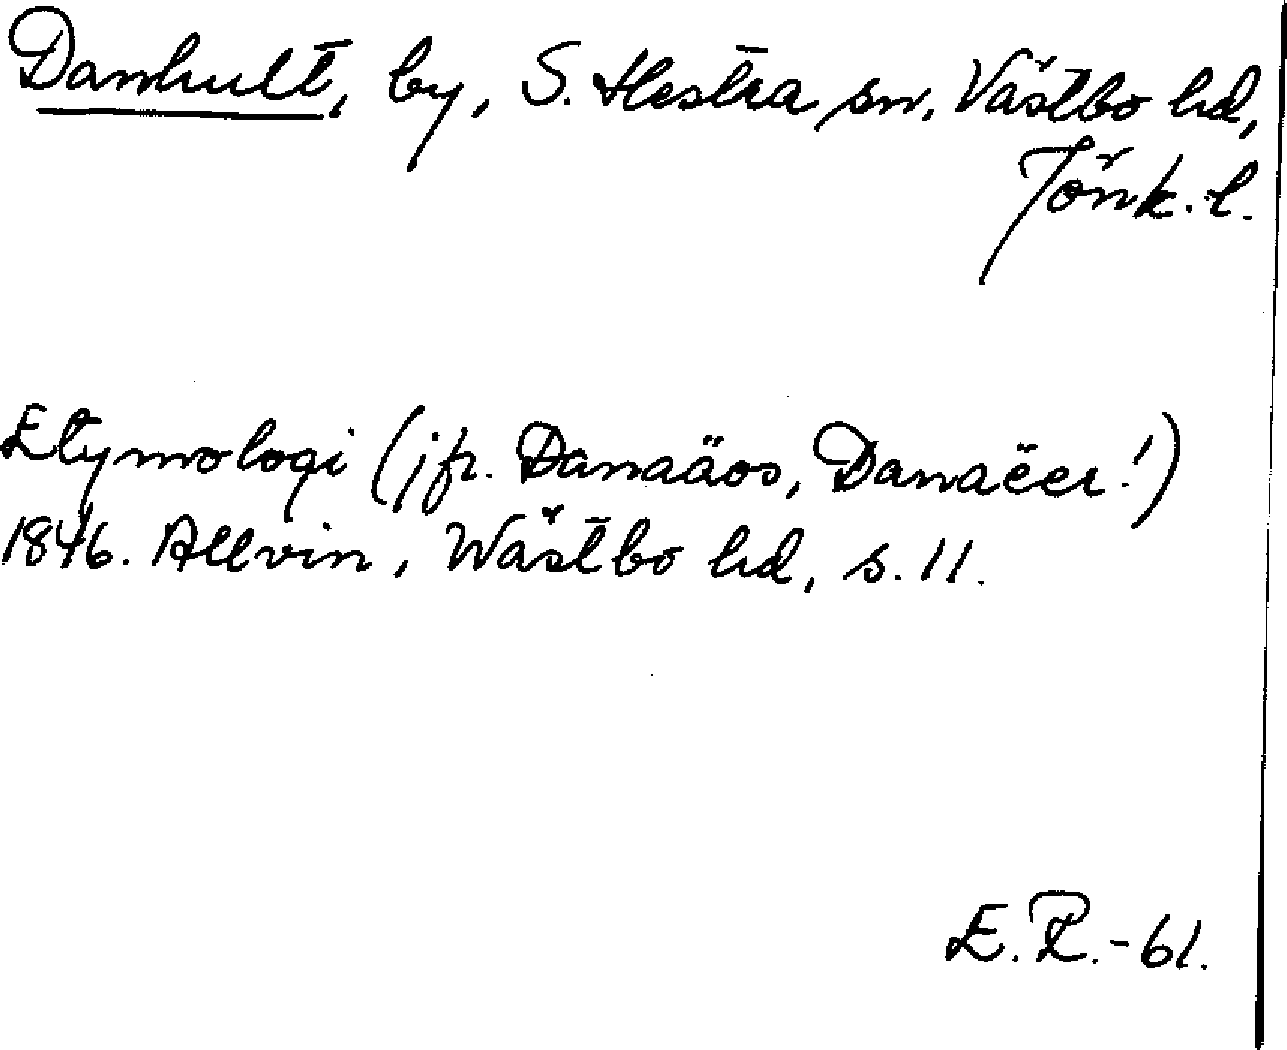 Danhult, by, S. Hestra sn, Västbo hd,
Jönk. l.
Etymologi (jfr. Danaäos, Danaëer!)
1846. Allvin, Wästbo hd, s. 11.
E. R. -61.